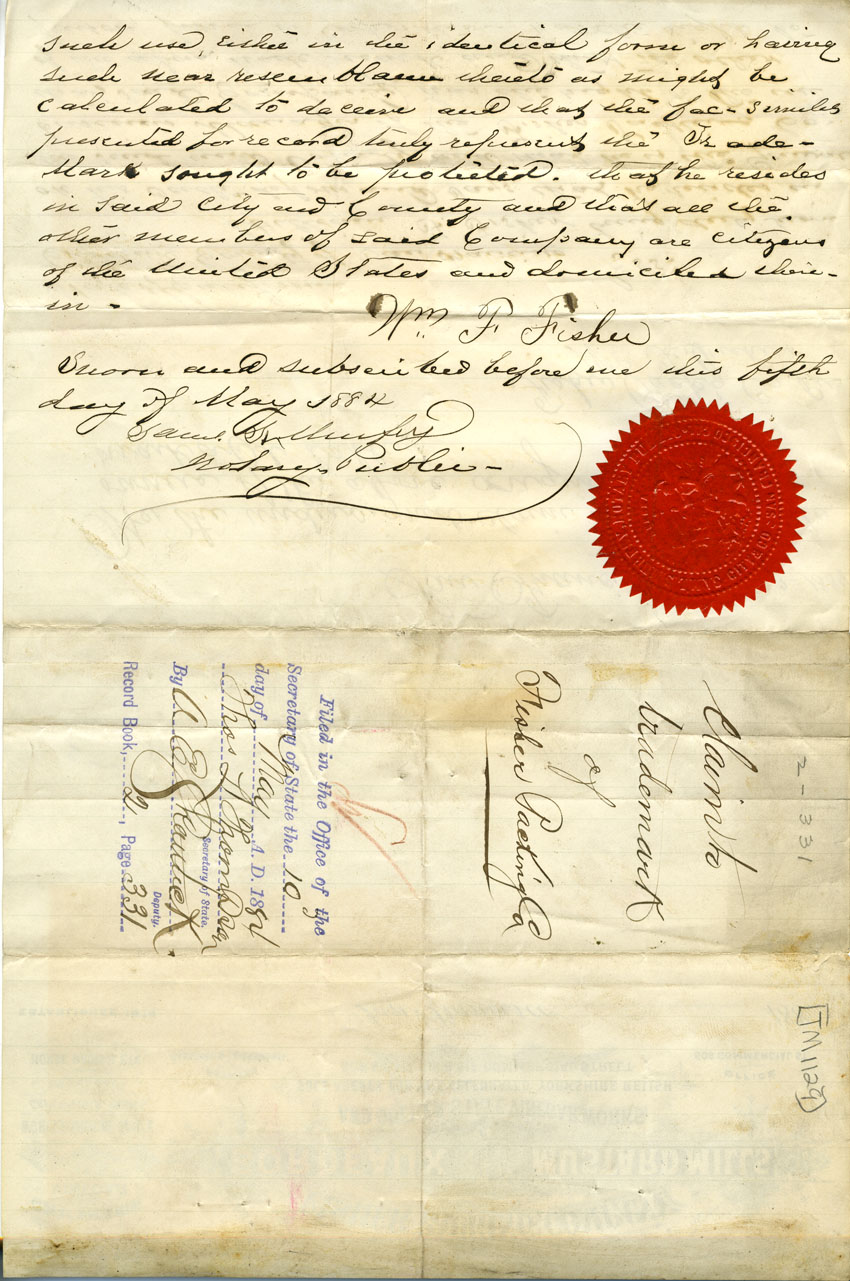 such use, either in the identical form or having
such near resemblance thereto as might be
calculated to deceive and that the fac-similes
presented for record truly represents the Trade-
Mark sought to be protected. that he resides
in said City and County and that all the
other members of said Company are citizens
of the United States and domiciled there-
in -
Wm F Fisher
Sworn and subscribed before me this fifth
day of May 1884
Saml
Notary Public -
Claim to
trademark
of
Fisher Packing Co
2-331
Filed in the Office of the
Secretary of State the 10
day of May A.D. 1884
Thos L Thompson
Secretary of State,
By A E Shattuck
Deputy.
Record Book, 2, Page 331
[TM1129]